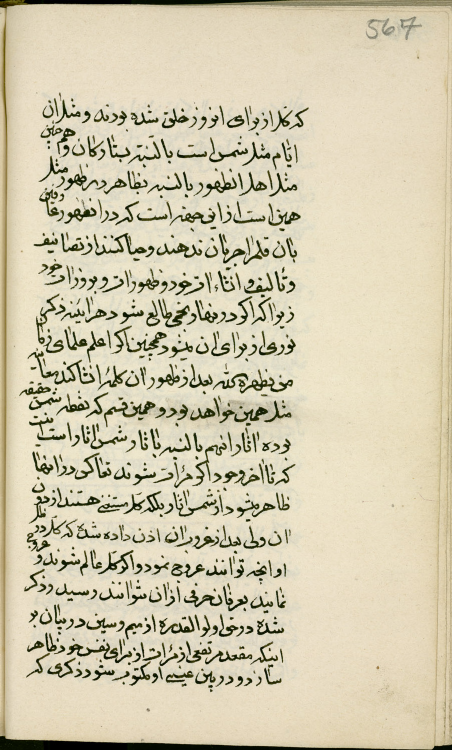 567
که کل از برای انروز خلق شده بودند و مثل ان
ایام مثل شمس است بالنسبه بستارگان و همچنین
مثل اهل انظهور بالنسبه بظاهر در ظهور مثل
همین است از این جهة است که در انظهور
بان قلم را جریان ندهند و حیا کنند از تصانیف
و تالیف و انشاءات خود و ظهورات و بروزات خود
زیرا که اگر در نهار نجمی طالع شود هراینه ذکر
نوری از برای ان نمیشود همچنین اگر اعلم علمای
من یظهره الله بعد از ظهور ان کلمه انشا کند
مثل همین خواهد بود و همین قسم که نقطه شمس حقیقة
بوده اثار انهم بالنسبه باثار شمس اثار است
که تا اخر وجود اگر مرات شوند تعاکس در انها
ظاهر میشود از شمس اثار بلکه کل مستضئ هستند از
ان ولی بعد از غروب ان اذن داده شده که کل در
او انچه توانند عروج نمود و اگر کل عالم شوند و
نمایند بعرفان حرفی از ان نتوانند رسید و ذکر
شده در حق اولوا القدره از میم و سین در بیان
اینکه مقعد مرتفعی از مرات از برای نفس خود ظاهر
سازد و در بین او مکتوب شود ذکری که